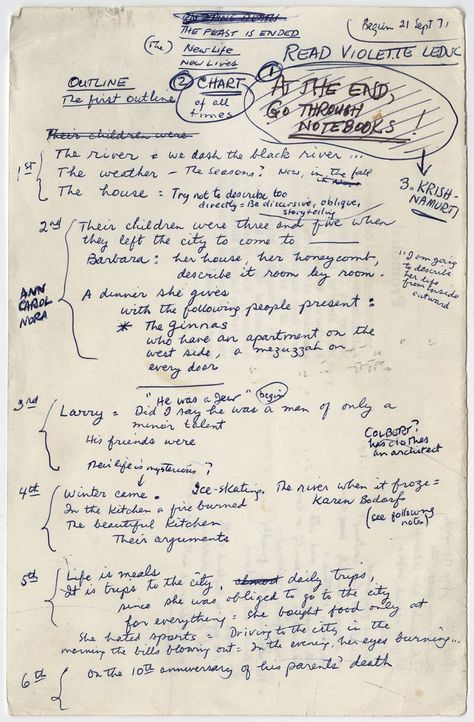 THE FEAST IS ENDED
(Begun 21 Sept 71
(The) New Life
New Lives
READ VIOLETTE LEDUC
OUTLINE
The first outline
② CHART
of all
times
①
AT THE END,
GO THROUGH
NOTEBOOKS!
3. KRISH-
NAMURTI
Their children were
1st
The river = we dash the black river ...
The weather – The seasons? Now, in the fall
The house = Try not to describe too
directly = Be discursive, oblique,
storytelling
2nd
Their children were three and five when
they left the city to come to
Barbara: her house, her honeycomb,
describe it room by room.
"I am going
to describe
her life
from inside
outward
ANN
CAROL
NORA
A dinner she gives
with the following people present:
* The Ginnas
who have an apartment on the
west side, a mezuzzah on
every door
3rd
"He was a Jew" begin
Larry = Did I say he was a man of only a
minor talent
His friends were
COLBERT?
was clothes
an architect
Their life is mysterious?
4th
Winter came. Ice-skating, The river when it froze =
In the kitchen a fire burned
Karen Bodarf
The beautiful kitchen
(see following
notes)
Their arguments
5th
Life is meals
It is trips to the city, almost daily trips,
since she was obliged to go to the city
for everything = She bought food only at
She hated sports = Driving to the city in the
morning the bills blowing out = In the evening, her eyes burning...
6th
On the 10th anniversary of his parents' death